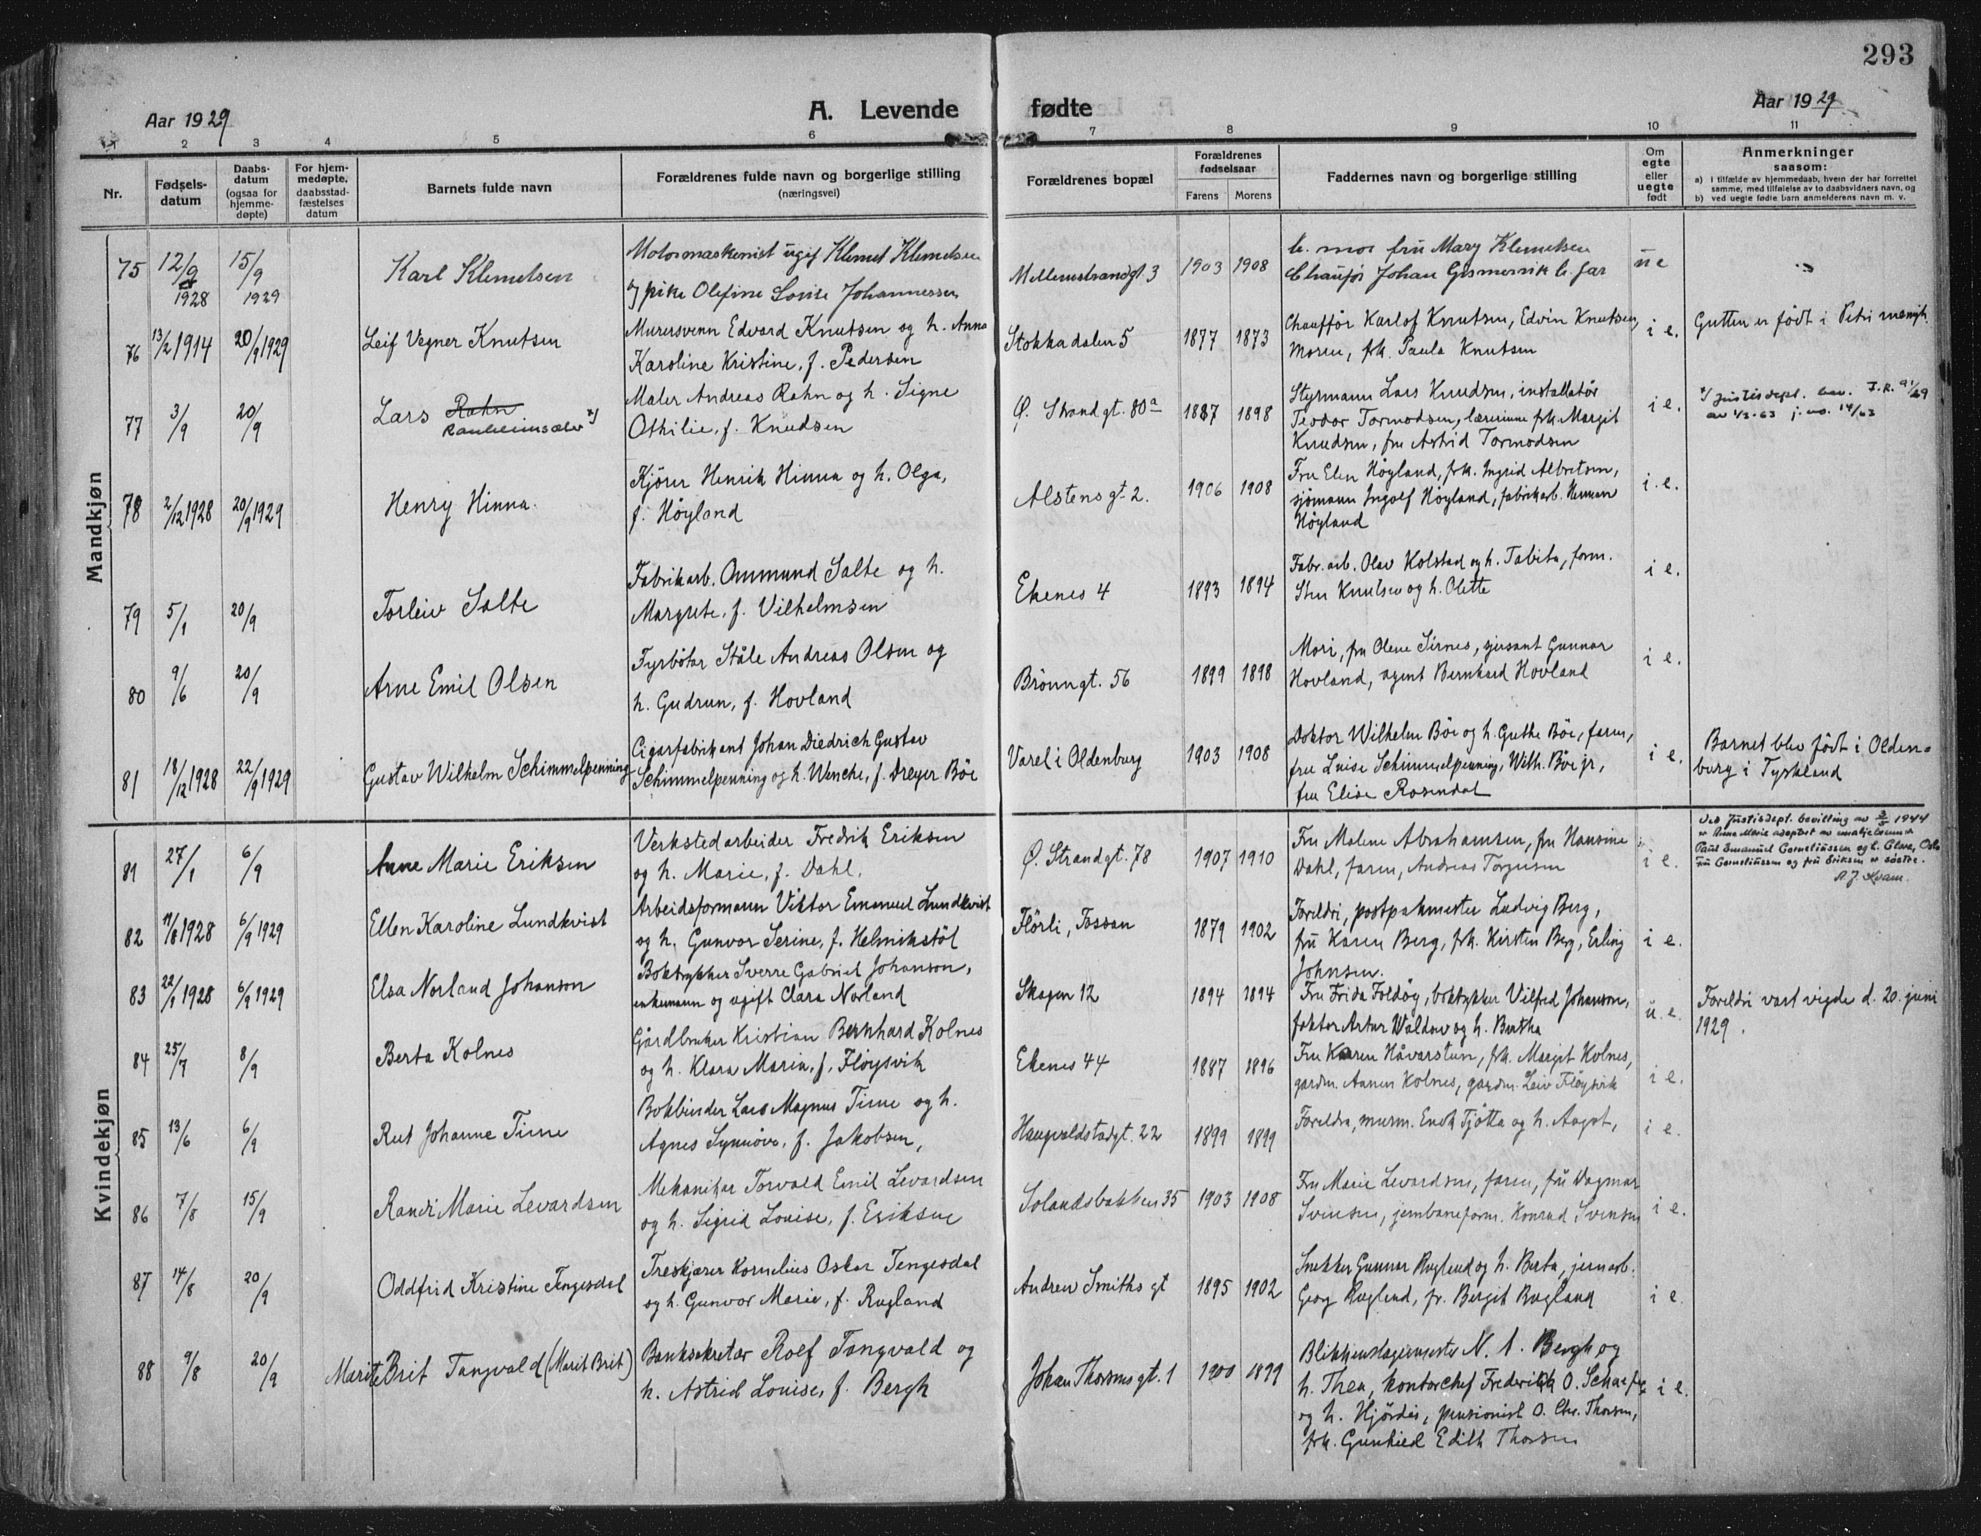 293
Aar 1929
A. Levende fødte
Aar 1929
1 2 3 4 5 6 7 8 9 10 11
Nr.
Fødsels-
datum
Daabs-
datum
(ogsaa for
hjemme-
døpte)
For hjem-
medøpte,
daabsstad-
fæstelses
datum
Barnets fulde navn
Forældrenes fulde navn og borgerlige stilling
(næringsvei)
Forældrenes bopæl
Forældrenes
fødselsaar
Farens Morens
Faddernes navn og borgerlige stilling
Om
egte
eller
uegte
født
Anmerkninger
saasom:
a) i tilfælde av hjemmedaab, hvem der har forrettet
samme, med tilføielse av to daabsvidners navn, og
b) ved uegte fødte barn anmelderens navn m. v.
Mandkjøn
75 12/9 1928 15/9 1929
Karl Klemetsen
Motormaskenist ugif Klemet Klemetsen
og pike Olefine Lovise Johannessen
Mellemstrandgt. 3
1903 1908
b. mor fru Mary Klemetsen
Chaufør Johan b. far
u e
76 13/2 1914 20/9 1929
Leif Vegner Knutsen
Murersvenn Edvard Knutsen og h. Anna
Karoline Kristine, f. Pedersen
Stokkadalen 5
1877 1873
Chauffør Karlof Knutsen, Edvin Knutsen,
Moren, frk. Paula Knutsen
i e.
Gutten er født i Petri menigh.
77 3/9 20/9
Lars Rahn
x)
Maler Andreas Rahn og h. Signe
Othilie, f. Knudsen
Ø. Strandgt. 80a
1887 1898
Styrmann Lars Knudsen, installatør
Teodor Tormodsen, lærerinne frk. Margit
Knudsen, fru Astrid Tormodsen
i e.
x) Justisdept. bev.
av 1/3-63 j. no. 14/63
78 2/12 1928 20/9 1929
Henry Hinna.
Kjører Henrik Hinna og h. Olga,
f. Høyland
Alstensgt. 2.
1906 1908
Fru Elen Høyland, frk. Ingrid Albretsen,
sjømann Ingolf Høyland, fabrikarb. Herman
Høyland
i. e.
79 5/1 20/9
Torleiv Salte
Fabrikarb. Ommund Salte og h.
Margrete, f. Vilhelmsen
Ekenes 4
1893 1894
Fabr. arb. Olav Kolstad og h. Tabita, form.
Sten Knutsen og h. Olette
i e.
80 9/6 20/9
Arne Emil Olsen
Fyrbøter Ståle Andreas Olsen og
h. Gudrun, f. Hovland
Brønngt. 56
1899 1898
Mori, fru Olene Sirnes, sersjant Gunnar
Hovland, agent Bernhard Hovland
i e.
81 18/12 1928 22/9 1929
Gustav Wilhelm Schimmelpenning
Cigarfabrikant Johan Diedrich Gustav
Schimmelpenning og h. Wenche, f. Dreyer Bøe
Varel i Oldenburg
1903 1908
Doktor Wilhelm Bøe og h. Grethe Bøe, faren,
fru Luise Schimmelpenning, Wilh. Bøe jr,
fru Elise Rosendal
i e.
Barnet blev født i Olden-
burg i Tyskland
Kvindekjøn
81 27/1 6/9
Anne Marie Eriksen
Verkstedarbeider Fredrik Eriksen
og h. Marie, f. Dahl.
Ø. Strandgt. 78
1907 1910
Fru Malene Abrahamsen, fru Hansine
Dahl, faren, Andreas Torgersen
i e.
Ved Justisdept. bevilling av 1944
er Anne Marie adoptert av
Paul Emanuel Corneliussen og h. Clara, Oslo
Fru Corneliussen og fru Eriksen er søstre.
A. J. Kvam.
82 11/8 1928 6/9 1929
Ellen Karoline Lundkvist
Arbeidsformann Viktor Emanuel Lundkvist
og h. Gunvor Serine, f. Helmikstøl
Flørli, Fossan
1879 1902
Foreldri, postpakmester Ludvig Berg,
fru Karen Berg, frk. Kirsten Berg, Erling
Johnsen.
i e.
83 22/9 1928 6/9 1929
Elsa Norland Johanson
Boktrykker Sverre Gabriel Johanson,
enkemann og ugift Clara Norland
Skagen 12
1894 1894
Fru Frida Foldøy, boktrykker Vilfred Johanson,
faktor Artur Waldow og h. Bertha
u. e.
Foreldri vart vigde d. 20. juni
1929.
84 25/7 8/9
Berta Kolnes
Gårdbruker Kristian Bernhard Kolnes
og h. Klara Maria, f. Fløysvik
Ekenes 44
1887 1896
Fru Karen Håvarstun, frk. Margit Kolnes,
gardm. Aanen Kolnes, gardm. Leiv Fløysvik
i e.
85 13/6 6/9
Rut Johanne Time
Bokbinder Lars Magnus Time og h.
Agnes Synnøve, f. Jakobsen,
Haugvaldstadgt. 22
1899 1899
Foreldra, murm. Enok Tjøtta og h. Aagot,
i e.
86 7/8 15/9
Randi Marie Levardsen
Mekaniker Torvald Emil Levardsen
og h. Sigrid Louise, f. Eriksen
Solandsbakken 35
1903 1908
Fru Marie Levardsen, faren, fru Dagmar
Svensen, jernbaneform. Konrad Svensen
i e.
87 14/8 20/9
Oddfrid Kristine Tengesdal
Treskjærer Kornelius Oskar Tengesdal
og h. Gunvor Marie, f. Rugland
Andrew Smiths gt
1895 1902
Snekker Gunnar Rugland og h. Berta, jernarb.
Georg Rugland, fr. Bergit Rugland
i e.
88 9/8 20/9
Marit Brit Tangvald (Marit Brit)
Banksekretær Rolf Tangvald og
h. Astrid Louise, f. Bergh
Johan Thorsens gt. 1
1900 1899
Blikkenslagermester N. A. Bergh og
h. Thea, kontorchef Frederik O. Schaefer
og h. Hjørdis, pensionist O. Chr. Thorsen,
frk. Gunhild Edith Thorsen
i e.